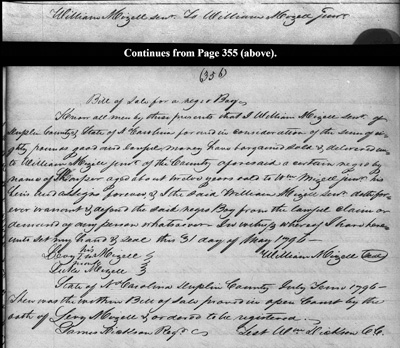 William Mizell Senr. To William Mizell Junr
Continues from Page 355 (above).
356
Bill of Sale for a negro Boy
Know all men by these presents that I William Mizell Senr. of
Duplin County & State of N Carolina for and in consideration of the sum of ei-
ghty pounds good and lawful money have bargained sold & delivered un-
to William Mizell junr. of the County aforesaid a certain negro by
name of aged about years sold to Wm. Mizell Junr. his
heirs and assigns forever, & I the said William Mizell Senr. doth for-
ever warrant & defend the said negro Boy from the lawful claim or
demand of any person whatsoever. In witness whereof I have here-
unto set my hand & seal this 31 day of May 1796 —
Levy his Mizell } William Mizell Seal
mark
Mizell }
State of No Carolina Duplin County July Term 1796 —
Then was the within Bill of Sale proved in open Court by the
oath of Levy Mizell & ordered to be registered.
James Dickson Regr. Test Wm. Dickson CC.